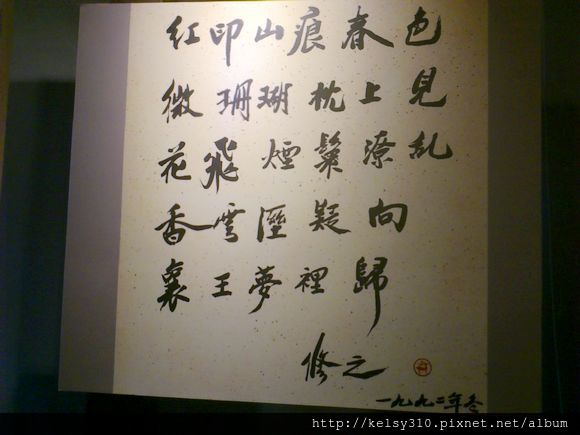 紅印山痕春色
微珊瑚枕上見
花飛煙鬟潦亂
香雲溼疑向
襄王夢裡歸
修之
一九九二年冬
http://kelsy310.pixnet.net/album